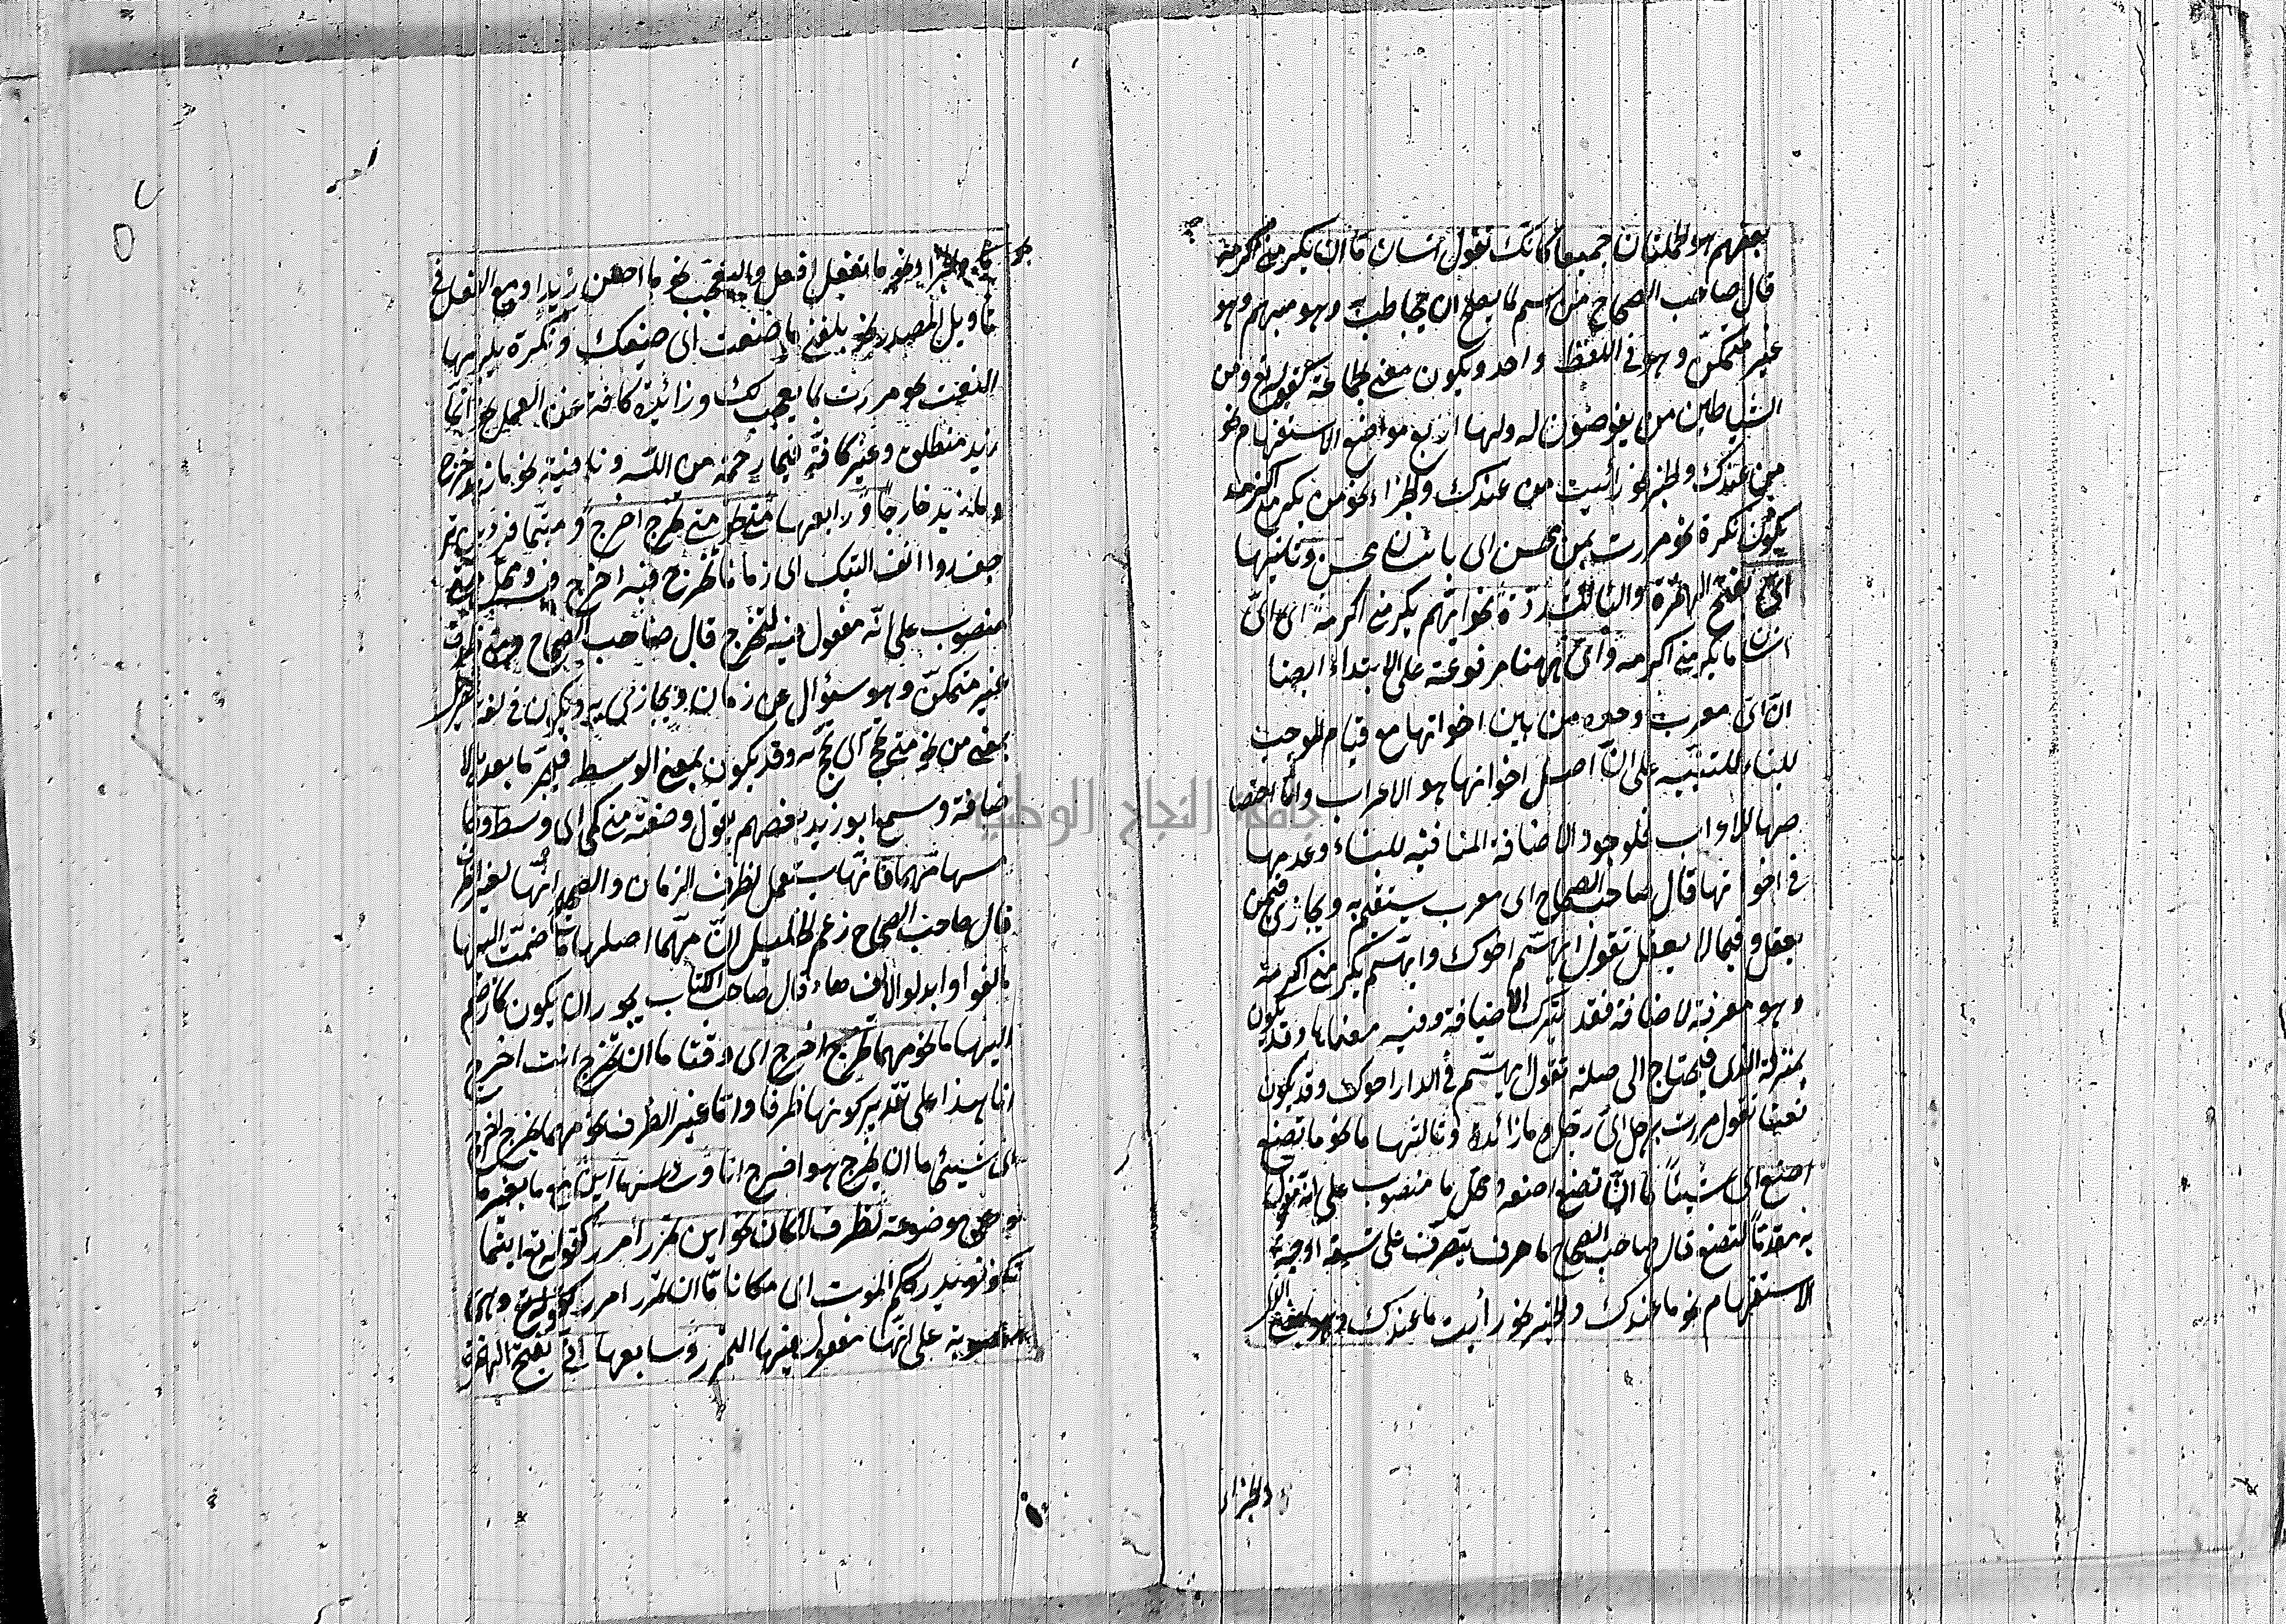 بعضهم هو الجملتان جميعا كانك تقول انسان ما ان يكرمنى اكرمه
قال صاحب الصحاح من اسم لما يصلح ان يخاطب وهو مبهم وهو
غير متمكن وهو فى اللفظ واحد ويكون معنى الجماعة كقوله تع ومن
الشياطين من يغوصون له ولها اربع مواضع الاستفهام نحو
من عندك والخبر نحو رأيت من عندك والجزاء نحو من يكرمنى اكرمه
يكون نكرة نحو مررت بمن محسن اى بانسان محسن وثانيها
اىّ بفتح الهمزة والياء المشددة نحو ايهم يكرمنى اكرمه اى اىّ
انسان ما يكرمنى اكرمه واى ههنا مرفوعة على الابتداء ايضا
انّ اىّ معرب وحده من بين اخواتها مع قيام الموجب
للبناء للتنبيه على انّ اصل اخواتها هو الاعراب وامّا اختصا
صها للاعراب فلوجود الاضافة المنافية للبناء وعدمها
فى اخواتها قال صاحب الصحاح اى معرب يستفهم به ويجازى فيمن
يعقل وفيما لا يعقل تقول ايهم اخوك وايهم يكرمنى اكرمه
وهو معرفة للاضافة فقد يترك الاضافة وفيه معناها وقد يكون
بمنزلة الذى فيحتاج الى صلة تقول ايهم فى الدار اخوك وقد يكون
نعتا تقول مررت برجل اىّ رجل وما زائدة وثالثها ما نحو ما تصنع
اصنع اى شيئا ما ان تصنع اصنعه ومحل ما منصوب على انه مفعول
به مقدما لتصنع قال صاحب الصحاح ما حرف يتصرف على تسعة اوجه
الاستفهام نحو ما عندك والخبر نحو رأيت ما عندك
والجزاء
والجزاء نحو ما تفعل افعل والتعجب نحو ما احسن زيدا ومع الفعل فى
تأويل المصدر نحو بلغنى ما صنعت اى صنيعك ونكرة يلزمها
النعت نحو مررت بما يعجب لك وزائدة كافة عن العمل نحو انّما
زيد منطلق وغير كافة نحو فبما رحمة من اللّه ونافية نحو ما زيد خرج
وما زيد خارجا ورابعها متى نحو متى تخرج اخرج ومتما
اى زمانا ما تخرج فيه اخرج فيه ومحل متى
منصوب على انّه مفعول فيه لتخرج قال صاحب الصحاح متى ظرف
غير متمكن وهو سؤال عن زمان ويجازى به ويكون فى لغة هذيل
بمعنى من نحو متى كمى اى كمه وقد يكون بمعنى الوسط فيجر ما بعده بالا
ضافة وسمع ابو زيد بعضهم يقول وضعته متى كمى اى وسط
سها مهما فانّها يستعمل لظرف الزمان والصحيح انّها لغير الظرف
قال صاحب الصحاح زعم الخليل انّ مهما اصلها ما ضمّت اليها
ما لغوا وابدلوا الالف هاء وقال صاحب الكتاب يجوز ان يكون كاذ ضم
اليها ما نحو مهما تخرج اخرج اى وقتا ما ان تخرج انت اخرج
انا هذا على تقدير كونها ظرفا وامّا غير الظرف نحو مهما يخرج اخرج
اى شيئ ما ان يخرج هو اخرج انا وسادسها اين مع ما وبغير ما
وهى موضوعة لظرف المكان نحو اين تمرر امرر كقوله تع اينما
تكونوا يدرككم الموت اى مكانا ما ان تمرر امرر وهى
منصوبة على انّها مفعول فيها لتمرر وسابعها انّى بفتح الهمزة
جامعة النجاح الوطنية